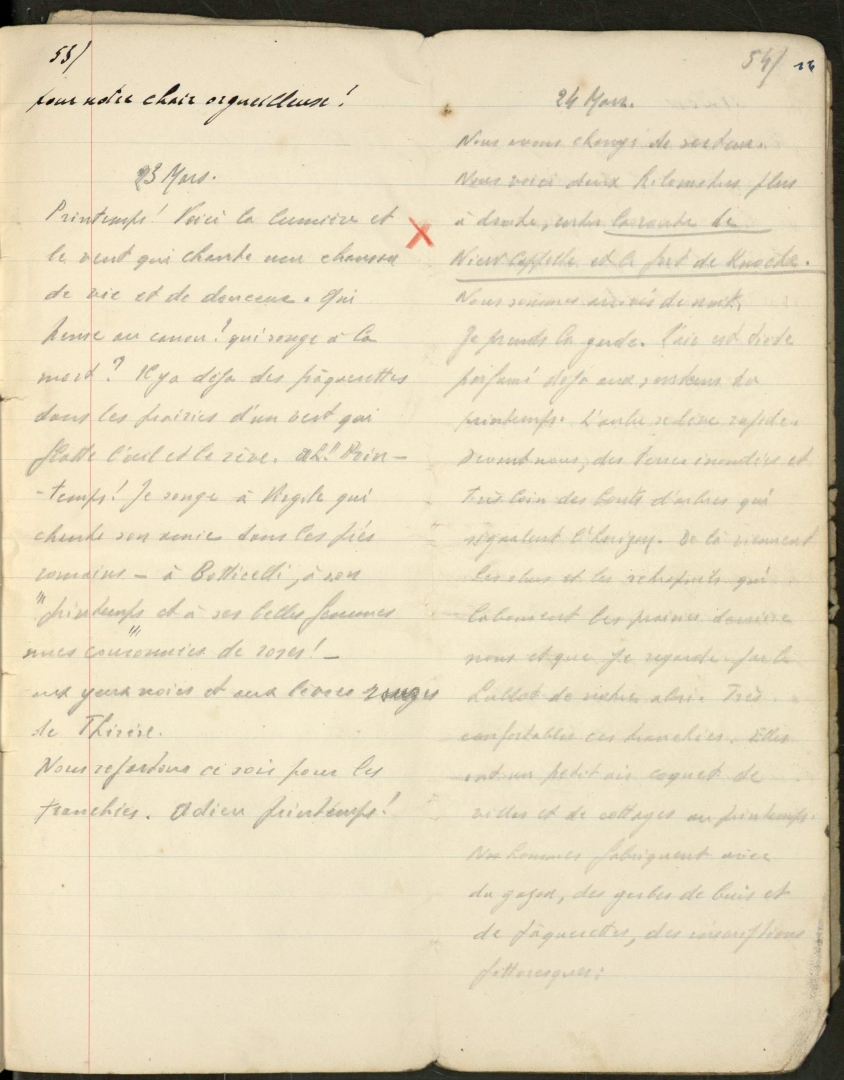 53/
pour notre chair orgueilleuse!
23 Mars.
Printemps! Voici la lumière et
le vent qui chante une chanson
de vie et de douceur. Qui
pense au canon! qui songe à la
mort? Il y a déjà des pâquerettes
dans les prairies d'un vert qui
flatte l'œil et le rêve. Ah! Prin-
-temps! Je songe à Virgile qui
chante son amie dans les prés
romains - à Botticelli, à son
"printemps et à ses belles femmes
nues couronnées de roses! -
aux yeux noirs et aux lèvres rouges
de Thérèse.
Nous repartons ce soir pour les
tranchées. Adieu printemps!
54/
24 Mars.
Nous avons changé de secteur.
Nous voici deux kilomètres plus
à droite, entre la route de
Nieuw Cappelle et le fort de Knocke.
Nous sommes arrivés de nuit.
Je prends la garde. L'air est tiède
parfumé déjà aux senteurs du
printemps. L'aube se lève rapide.
Devant nous, des terres inondées et
très loin des bouts d'arbres qui
signalent l'horizon. De là viennent
les obus et les shrapnels qui
labourent les prairies derrière
nous et que je regarde par le
hublot de notre abri. Très
confortables ces tranchées. Elles
ont un petit air coquet de
villas et de cottages au printemps.
Nos hommes fabriquent avec
du gazon, des gerbes de buis et
de pâquerettes, des inscriptions
pittoresques: